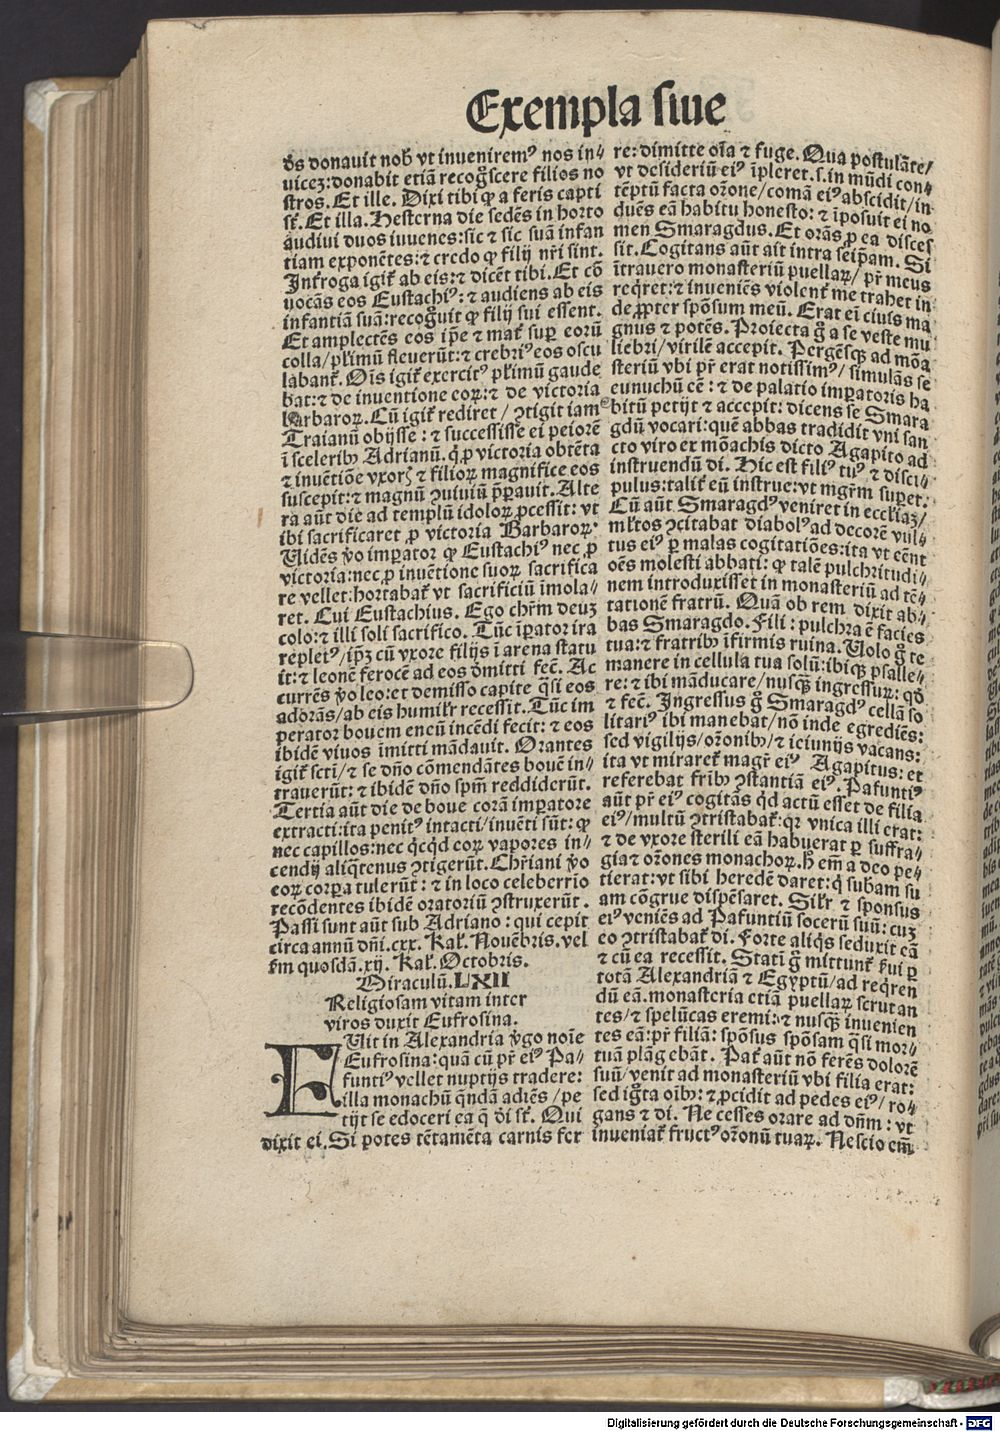 Exempla siue
ds donauit nob vt inuenirem⁹ nos in⸗
uicez: donabit etiā recog̃scere filios no
stros. Et ille. Dixi tibi ꝙ a feris capti
st̃. Et illa. Hesterna die sedēs in horto
audiui duos iuuenes: sic ⁊ sic suā infan
tiam exponētes: ⁊ credo ꝙ filij nr̃i sint.
Int̃roga igit̃ ab eis: ⁊ dicēt tibi. Et cō
uocās eos Eustachi⁹: ⁊ audiens ab eis
infantiā suā: recog̃uit ꝙ filij sui essent.
Et amplectēs eos ip̃e ⁊ mat̃ sup eorū
colla/ pl̃imū fleuerūt: ⁊ crebri⁹ eos oscu
labant̃. Oīs igit̃ exercit⁹ pl̃imū gaude
bat: ⁊ de inuentione eoꝝ: ⁊ de victoria
barbaroꝝ. Cū igit̃ rediret/ ꝯtigit iam
Traianū obijsse: ⁊ successisse ei peiorē
ī scelerib⁹ Adrianū. q̇ ꝓ victoria obtēta
⁊ inuētiōe vxorꝭ ⁊ filioꝝ magnifice eos
suscepit: ⁊ magnū ꝯuiuiū ꝑꝑauit. Alte
ra aūt die ad templū idoloꝝ ꝓcessit: vt
ibi sacrificaret ꝓ victoria Barbaroꝝ.
Uidēs v̊o imꝑator ꝙ Eustachi⁹ nec ꝓ
victoria: nec ꝓ inuētione suoꝝ sacrifica
re vellet: hortabat̃ vt sacrificiū īmola⸗
ret. Cui Eustachius. Ego chr̃m deuz
colo: ⁊ illi soli sacrifico. Tūc īꝑator ira
replet⁹/ ip̃z cū vxore filijs ī arena statu
it: ⁊ leonē ferocē ad eos dmitti fec̃. Ac
currēs v̊o leo: et demisso capite q̃si eos
adorās/ ab eis humilr̃ recessit. Tūc im
perator bouem eneū incēdi fecit: ⁊ eos
ibidē viuos īmitti mādauit. Orantes
igit̃ sct̃i/ ⁊ se dño cōmendātes bouē in⸗
trauerūt: ⁊ ibidē dño spm̃ reddiderūt.
Tertia aūt die de boue corā imꝑatore
extracti: ita penit⁹ intacti/ inuēti sūt: ꝙ
nec capillos: nec q̇cq̇d eoꝝ vapores in⸗
cendij aliq̃tenus ꝯtigerūt. Chr̃iani v̊o
eoꝝ corꝑa tulerūt: ⁊ in loco celeberrīo
recōdentes ibidē oratoriū ꝯstruxerūt.
Passi sunt aūt sub Adriano: qui cepit
circa annū dñi. cxx. Kal̃. Nouēbris. vel
fm quosdā. xij. Kal̃. Octobris.
Miraculū. LXII
Religiosam vitam inter
viros duxit Eufrosina.
FUit in Alexandria v̊go noīe
Eufrosina: quā cū pr̃ ei⁹ Pa⸗
funti⁹ vellet nuptijs tradere:
illa monachū q̃ndā adiēs/ pe
tijt se edoceri ea q̃ di st̃. Qui
dixit ei. Si potes tētamēta carnis fer
re: dimitte oīa ⁊ fuge. Qua postulāte/
vt desideriū ei⁹ īpleret. s. in mūdi con⸗
tēptū facta or̃one/ comā ei⁹ abscidit/ in⸗
duēs eā habitu honesto: ⁊ īposuit ei no
men Smaragdus. Et orās ꝓ ea disces
sit. Cogitans aūt ait intra seip̃am. Si
ītrauero monasteriū puellaꝝ/ pr̃ meus
req̃ret: ⁊ inueniēs violent̃ me trahet in
de ꝓpter spōsum meū. Erat ei ciuis ma
gnus ⁊ potēs. Proiecta g̊ a se veste mu
liebri/ virilē accepit. Pergēsq̃ ad mōa
steriū vbi pr̃ erat notissim⁹/ simulās se
eunuchū eē: ⁊ de palatio imꝑatoris ha
bitū petijt ⁊ accepit: dicens se Smara
gdū vocari: quē abbas tradidit vni san
cto viro ex mōachis dicto Agapito ad
instruendū di. Hic est fili⁹ tu⁹ ⁊ disci⸗
pulus: talit̃ eū instrue: vt mgr̃m suꝑet.
Cū aūt Smaragd⁹ veniret in eccl̃iaz/
ml̃tos ꝯcitabat diabol⁹ ad decorē vul⸗
tus ei⁹ ꝑ malas cogitatiōes: ita vt eēnt
oēs molesti abbati: ꝙ talē pulchritudi⸗
nem introduxisset in monasteriū ad tē⸗
tationē fratrū. Quā ob rem dixit ab⸗
bas Smaragdo. Fili: pulchra ē facies
tua: ⁊ fratrib⁹ īfirmis ruina. Uolo g̊ te
manere in cellula tua solū: ibiq̃ psalle⸗
re: ⁊ ibi māducare/ nusq̃ ingressuꝝ: qd
⁊ fec̃. Ingressus g̊ Smaragd⁹ cellā so
litari⁹ ibi manebat/ nō inde egrediēs:
sed vigilijs/ or̃onib⁹/ ⁊ ieiunijs vacans:
ita vt miraret̃ magr̃ ei⁹ Agapitus: et
referebat fr̃ib⁹ ꝯstantiā ei⁹. Pafunti⁹
aūt pr̃ ei⁹ cogitās q̇d actū esset de filia
ei⁹/ multū ꝯtristabat̃: qꝛ vnica illi erat:
⁊ de vxore sterili eā habuerat ꝑ suffra⸗
gia ⁊ or̃ones monachoꝝ. h̃ em̃ a deo pe⸗
tierat: vt sibi heredē daret: q̇ subam su
am cōgrue dispēsaret. Silr̃ ⁊ sponsus
ei⁹ veniēs ad Pafuntiū socerū suū: cuz
eo ꝯtristabat̃ di. Forte aliq̇s seduxit eā
⁊ cū ea recessit. Statī g̊ mittunt̃ f̃ui ꝑ
totā Alexandriā ⁊ Egyptū/ ad req̃ren
dū eā. monasteria etiā puellaꝝ scrutan
tes/ ⁊ spelūcas eremi: ⁊ nusq̃ inuenien
tes eā: pr̃ filiā: spōsus spōsam q̃si mor⸗
tuā plāgebāt. Pat̃ aūt nō ferēs dolorē
suū/ venit ad monasteriū vbi filia erat:
sed ig̃ta oīb⁹: ⁊ ꝓcidit ad pedes ei⁹/ ro⸗
gans ⁊ di. Ne cesses orare ad dñm: vt
inueniat̃ fruct⁹ or̃onū tuaꝝ. Nescio em̃
Digitalisierung gefördert durch die Deutsche Forschungsgemeinschaft - DFG